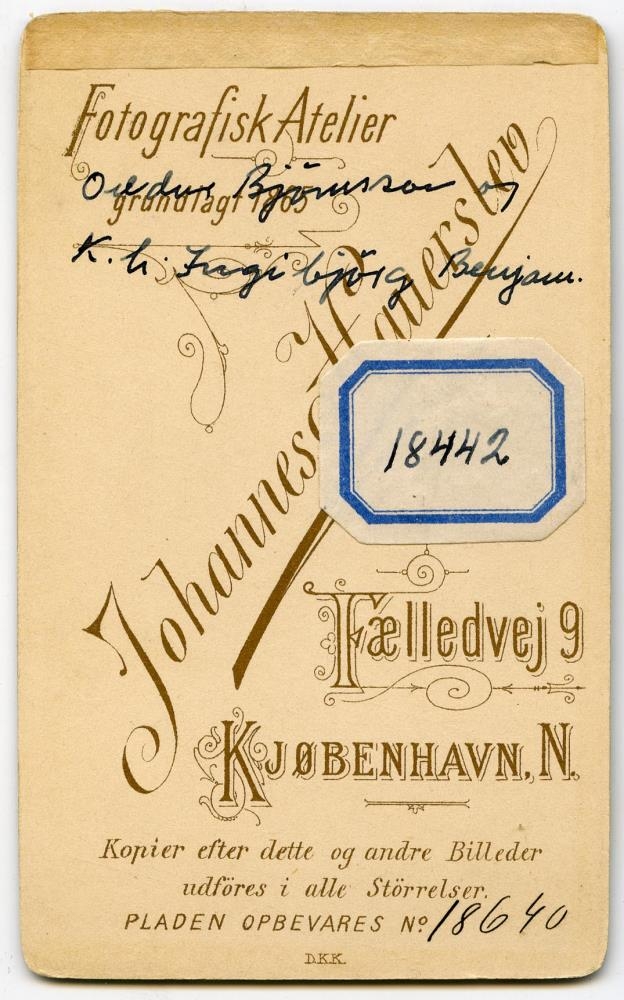 Fotografisk Atelier
Oddur Björnsson og
grundlagt 1865
K. h. Ingibjörg Benjam.
Johannes Haderslev
18442
Fælledvej 9
KJØBENHAVN, N.
Kopier efter dette og andre Billeder
udföres i alle Störrelser.
PLADEN OPBEVARES Nº 18640
D.K.K.